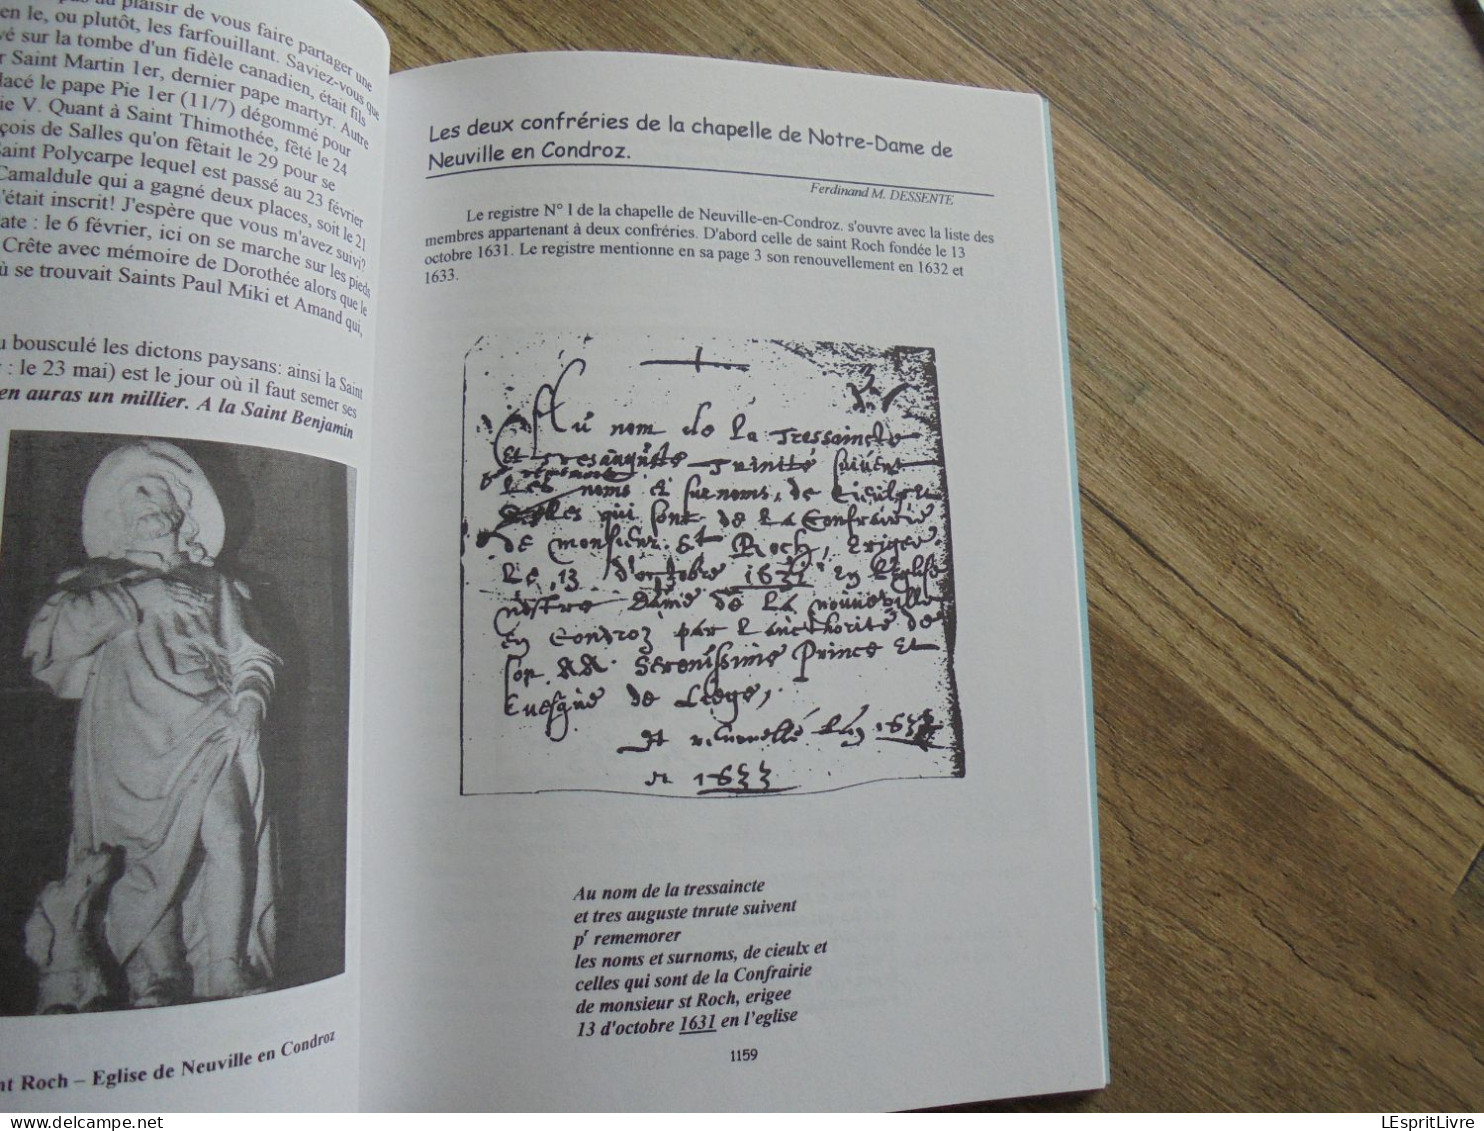 plaisir de vous faire partager une
en le, ou plutôt, les farfouillant. Saviez-vous que
vé sur la tombe d'un fidèle canadien, était fils
r Saint Martin 1er, dernier pape martyr. Autre
lacé le pape Pie 1er (11/7) dégommé pour
ie V. Quant à Saint Thimothée, fêté le 24
çois de Salles qu'on fêtait le 29 pour se
Saint Polycarpe lequel est passé au 23 février
Camaldule qui a gagné deux places, soit le 21
'était inscrit! J'espère que vous m'avez suivi?
ate : le 6 février, ici on se marche sur les pieds
Crête avec mémoire de Dorothée alors que le
ù se trouvait Saints Paul Miki et Amand qui,
u bousculé les dictons paysans: ainsi la Saint
: le 23 mai) est le jour où il faut semer ses
en auras un millier. A la Saint Benjamin
nt Roch – Eglise de Neuville en Condroz
Les deux confréries de la chapelle de Notre-Dame de
Neuville en Condroz.
Ferdinand M. DESSENTE
Le registre N° I de la chapelle de Neuville-en-Condroz, s'ouvre avec la liste des
membres appartenant à deux confréries. D'abord celle de saint Roch fondée le 13
octobre 1631. Le registre mentionne en sa page 3 son renouvellement en 1632 et
1633.
Au nom de la tressaincte
et tresauguste Trinité suivent
pr rememorer
les noms et surnoms, de cieulx et
celles qui sont de la Confrairie
de monsieur St Roch, erigee
le 13 d'octobre 1631 en l'eglise
nostre Dame de la nouveville
en Condroz par l'aucthorité de
son AA. Serenissime Prince et
Evesque de Liege,
et renouvellé l'an 1632
et 1633
Au nom de la tressaincte
et tres auguste tnrute suivent
pr rememorer
les noms et surnoms, de cieulx et
celles qui sont de la Confrairie
de monsieur st Roch, erigee
13 d'octobre 1631 en l'eglise
1159
LEspritLivre